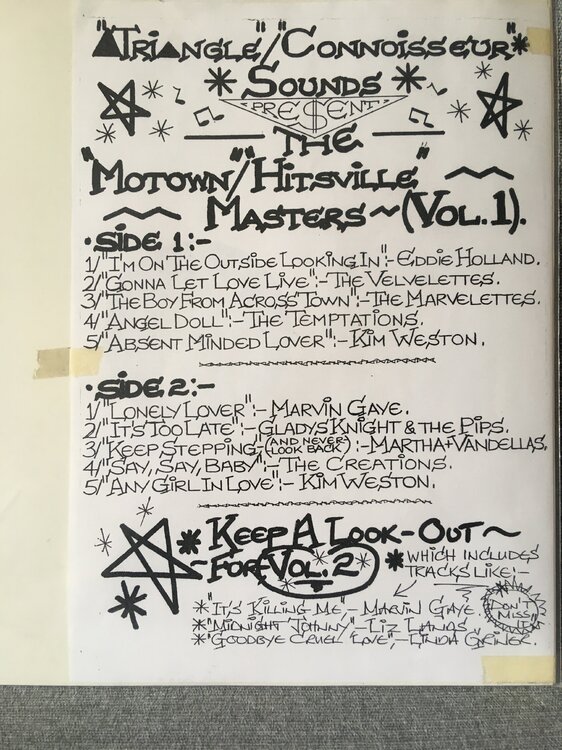 "TRIANGLE"/"CONNOISSEUR"*
* SOUNDS *
"PRE$ENT"
THE
"MOTOWN"/"HITSVILLE"
MASTERS ~ (VOL. 1).
• SIDE 1:-
1/"I'M ON THE OUTSIDE LOOKING IN":- EDDIE HOLLAND.
2/"GONNA LET LOVE LIVE":- THE VELVELETTES.
3/"THE BOY FROM ACROSS TOWN":- THE MARVELETTES.
4/"ANGEL DOLL":- THE TEMPTATIONS.
5/"ABSENT MINDED LOVER":- KIM WESTON.
• SIDE 2:-
1/"LONELY LOVER":- MARVIN GAYE.
2/"IT'S TOO LATE":- GLADYS KNIGHT & THE PIPS.
3/"KEEP STEPPING," (AND NEVER LOOK BACK):- MARTHA + VANDELLAS.
4/"SAY, SAY, BABY":- THE CREATIONS.
5/"ANY GIRL IN LOVE":- KIM WESTON.
* KEEP A LOOK-OUT ~
~ FOR VOL. 2
* WHICH INCLUDES
TRACKS LIKE:-
* "IT'S KILLING ME" - MARVIN GAYE.
* "MIDNIGHT JOHNNY" - LIZ LANDS.
* "GOODBYE CRUEL LOVE", - LINDA GRINER.
DON'T
MISS
IT